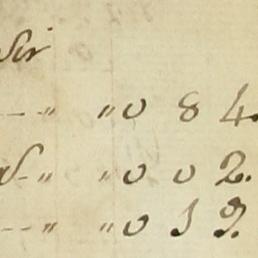 Sir
-- " " 0 8 4.
- " " 0 0 2.
-- " " 0 1 9.